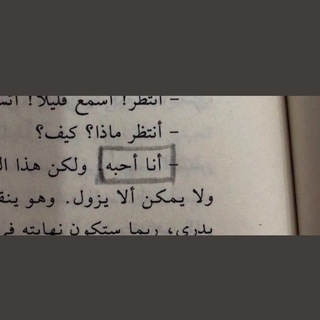 - أنتظر! اسمع قليلا!
- أنتظر ماذا؟ كيف؟
- أنا أحبه. ولكن هذا
ولا يمكن ألا يزول. وهو
يدري، ربما ستكون نهايته في